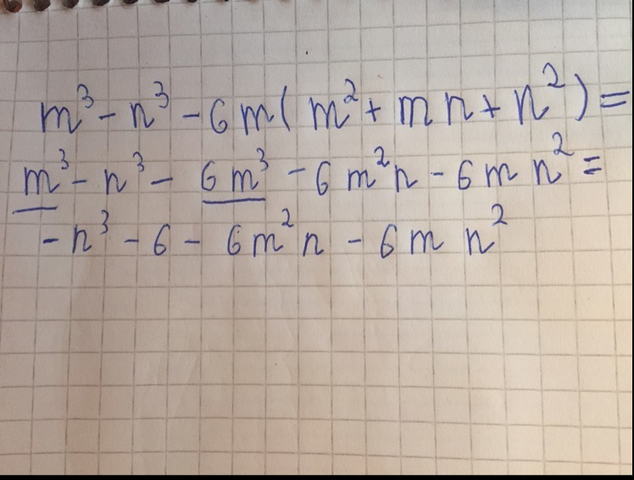 m³ - n³ - 6m(m² + mn + n²) =
m³ - n³ - 6m³ - 6m²n - 6mn² =
- n³ - 6 - 6m²n - 6mn²